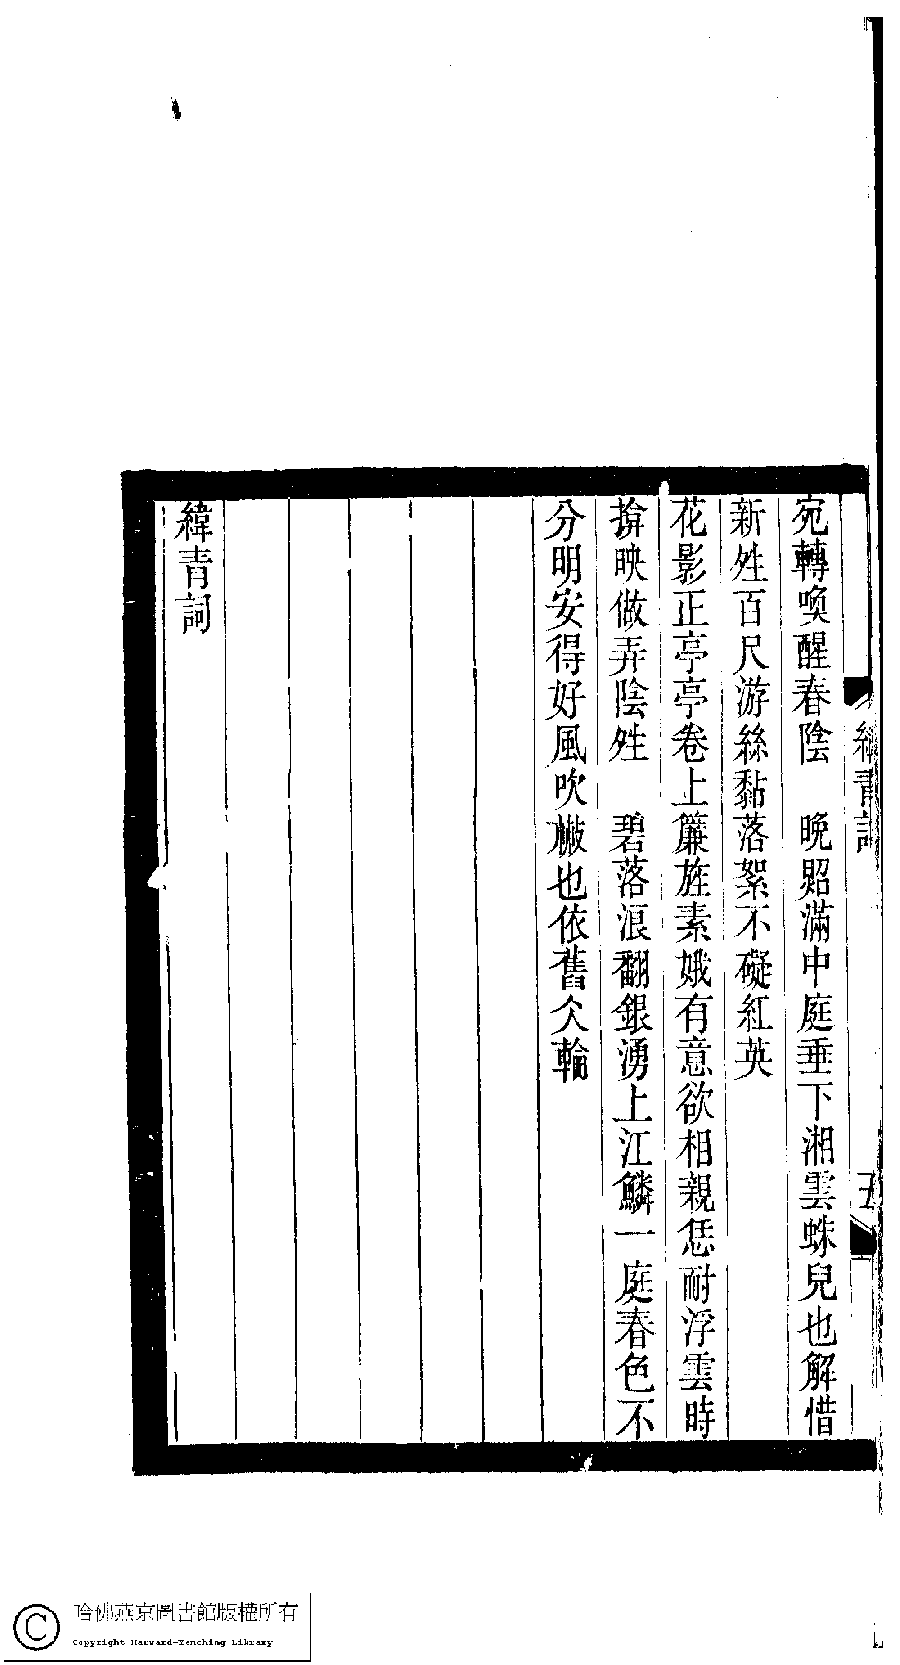 緯青詞
五
宛轉喚醒春陰　晚照滿中庭垂下湘雲蛛兒也解惜
新姓百尺游絲黏落絮不礙紅英
花影正亭亭卷上簾旌素娥有意欲相親恁耐浮雲時
揜映做弄陰姓　碧落浪翻銀湧上江鱗一庭春色不
分明安得好風吹㪇也依舊仌輪
緯青詞
哈佛燕京圖書館版權所有
Copyright Harvard-Yenching Library